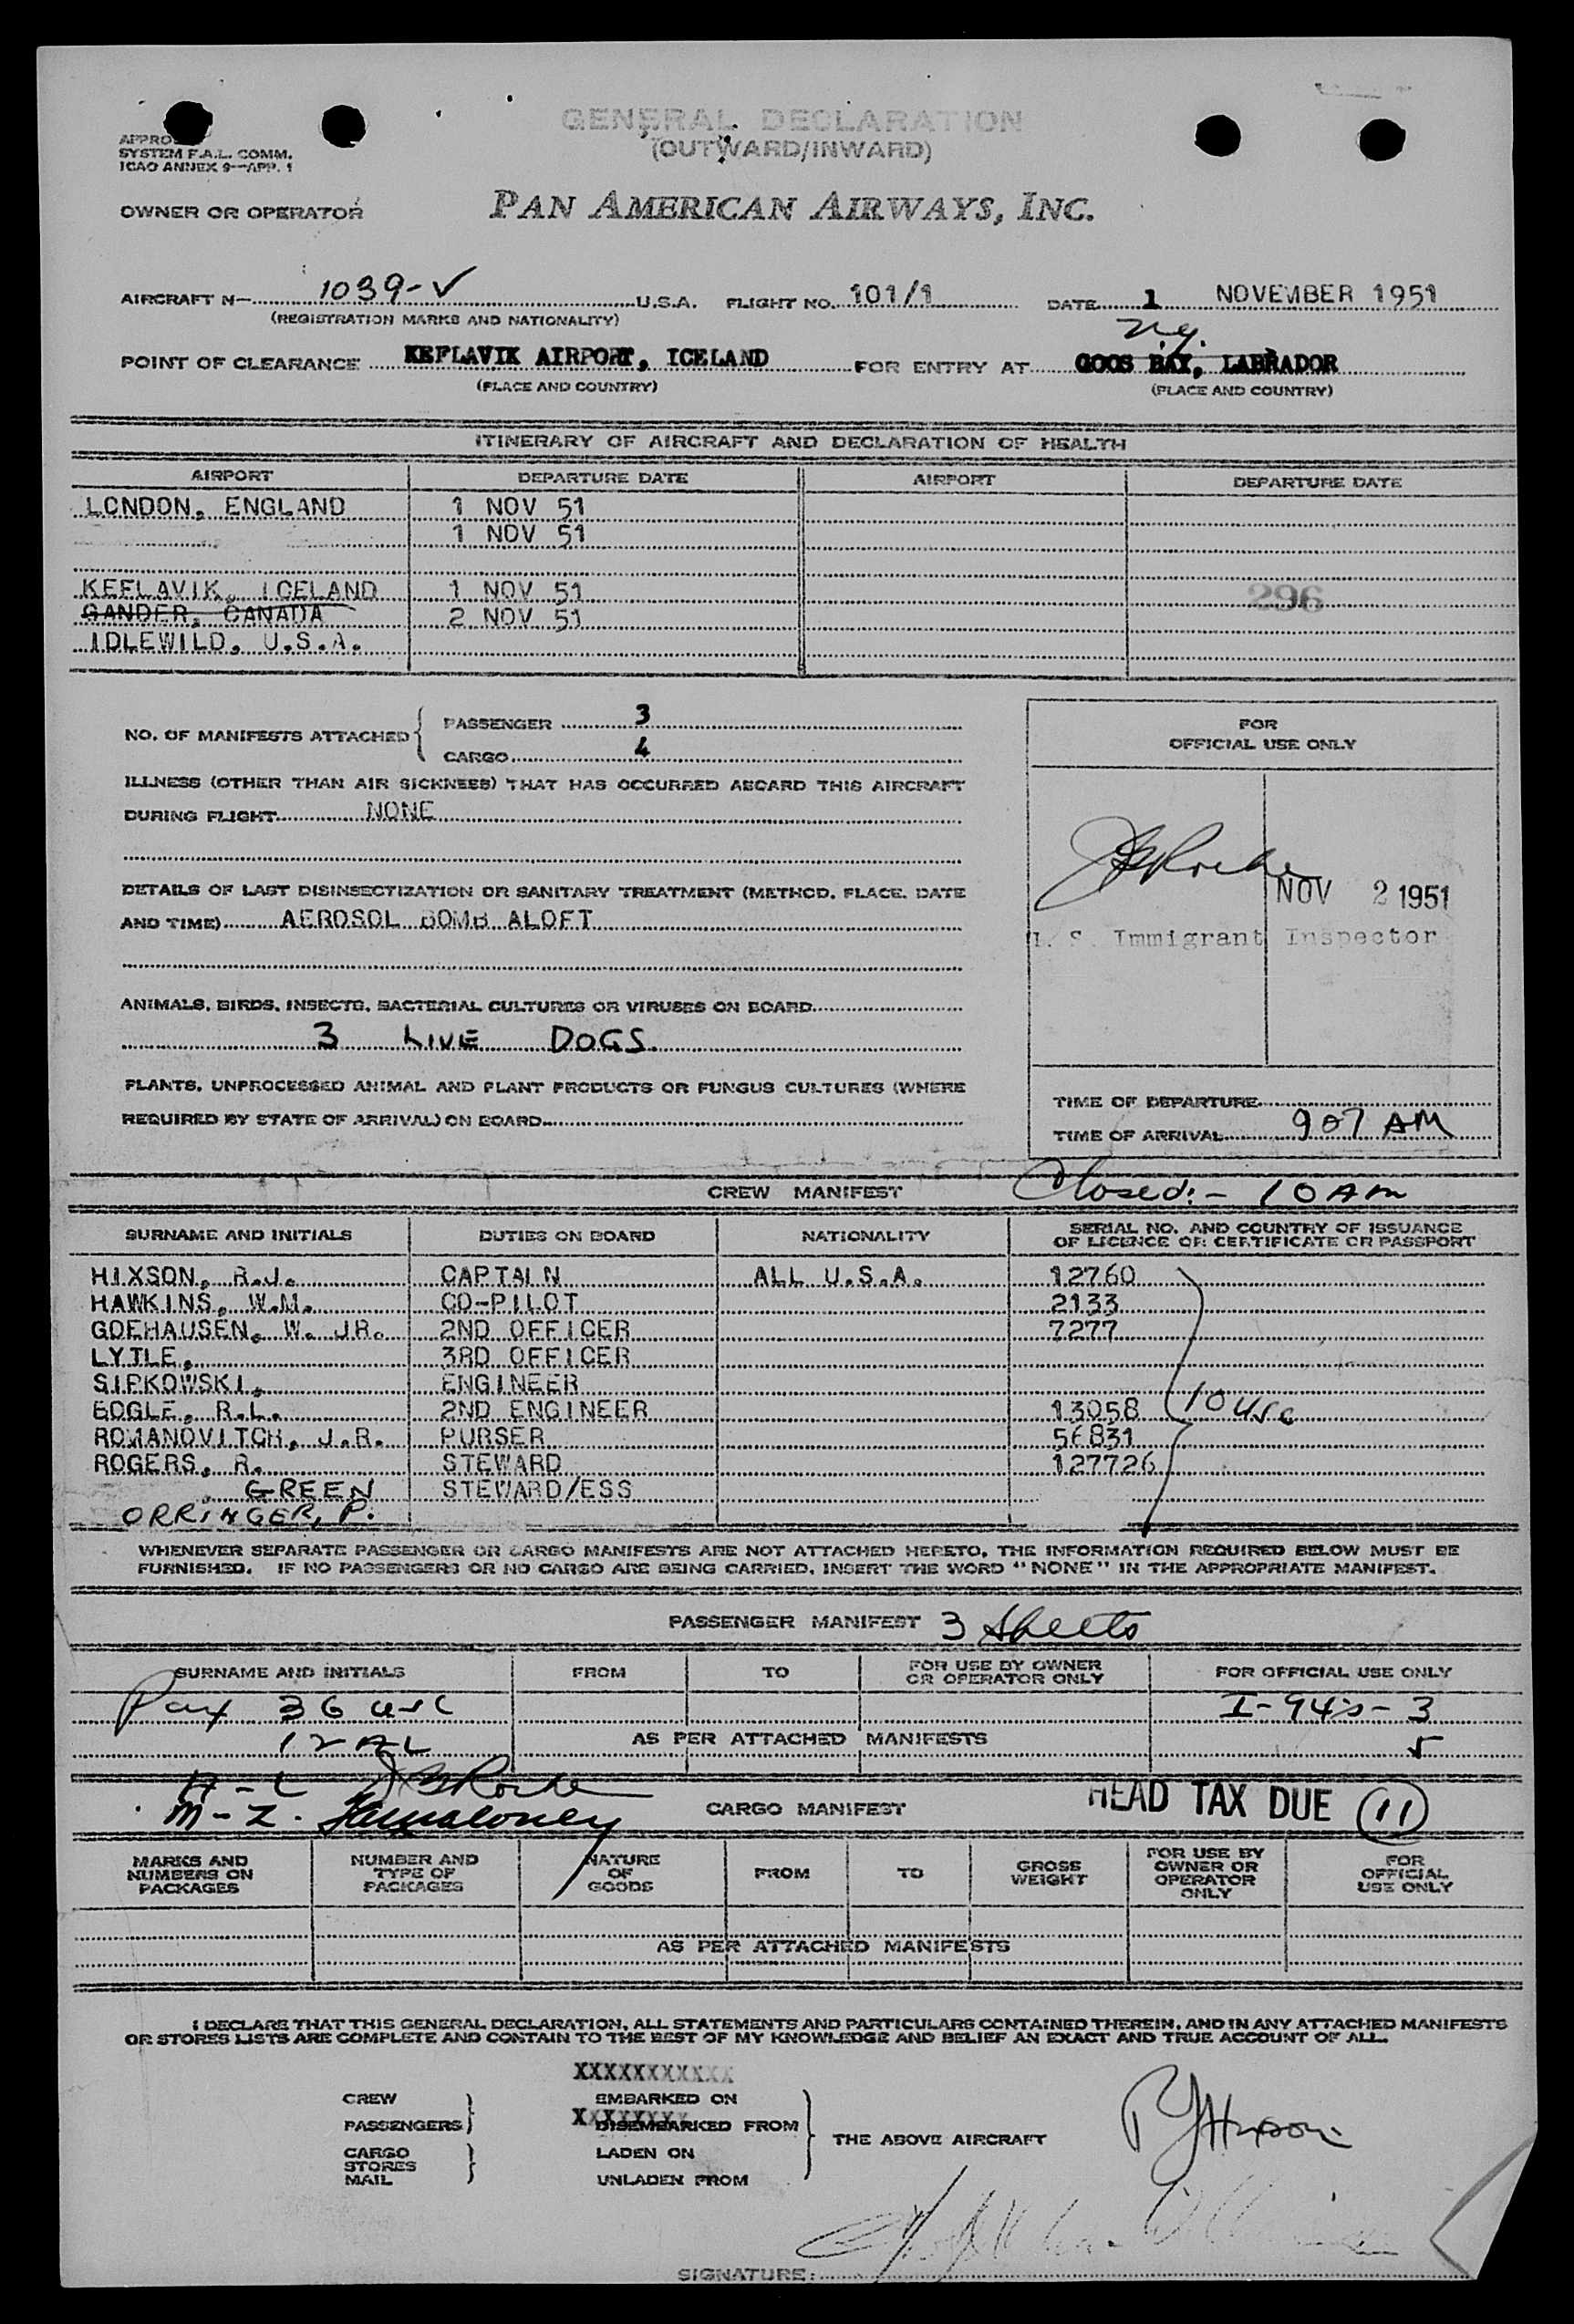 GENERAL DECLARATION
(OUTWARD/INWARD)
SYSTEM F.A.L. COMM.
ICAO ANNEX 9—APP. 1
OWNER OR OPERATOR PAN AMERICAN AIRWAYS, INC.
AIRCRAFT N— 1039-V U.S.A. FLIGHT NO. 101/1 DATE 1 NOVEMBER 1951
(REGISTRATION MARKS AND NATIONALITY)
N.Y.
POINT OF CLEARANCE KEFLAVIK AIRPORT, ICELAND FOR ENTRY AT GOOS BAY, LABRADOR
(PLACE AND COUNTRY) (PLACE AND COUNTRY)
ITINERARY OF AIRCRAFT AND DECLARATION OF HEALTH
AIRPORT DEPARTURE DATE AIRPORT DEPARTURE DATE
LONDON, ENGLAND 1 NOV 51
1 NOV 51
KEFLAVIK, ICELAND 1 NOV 51 296
GANDER, CANADA 2 NOV 51
IDLEWILD, U.S.A.
NO. OF MANIFESTS ATTACHED { PASSENGER 3
CARGO 4
ILLNESS (OTHER THAN AIR SICKNESS) THAT HAS OCCURRED ABOARD THIS AIRCRAFT
DURING FLIGHT NONE
DETAILS OF LAST DISINSECTIZATION OR SANITARY TREATMENT (METHOD, PLACE, DATE
AND TIME) AEROSOL BOMB ALOFT
ANIMALS, BIRDS, INSECTS, BACTERIAL CULTURES OR VIRUSES ON BOARD
3 LIVE DOGS.
PLANTS, UNPROCESSED ANIMAL AND PLANT PRODUCTS OR FUNGUS CULTURES (WHERE
REQUIRED BY STATE OF ARRIVAL) ON BOARD
FOR
OFFICIAL USE ONLY
NOV 2 1951
U. S. Immigrant Inspector
TIME OF DEPARTURE
TIME OF ARRIVAL 907 AM
CREW MANIFEST Closed:- 10 AM
SURNAME AND INITIALS DUTIES ON BOARD NATIONALITY SERIAL NO. AND COUNTRY OF ISSUANCE
OF LICENCE OR CERTIFICATE OR PASSPORT
HIXSON, R.J. CAPTAIN ALL U.S.A. 12760
HAWKINS, W.M. CO-PILOT 2133
GOEHAUSEN, W. JR. 2ND OFFICER 7277
LYTLE, 3RD OFFICER
SIPKOWSKI, ENGINEER
BOGLE, R.L. 2ND ENGINEER 13058 10 USC
ROMANOVITCH, J.R. PURSER 56831
ROGERS, R. STEWARD 127726
GREEN STEWARD/ESS
ORRINGER, P.
WHENEVER SEPARATE PASSENGER OR CARGO MANIFESTS ARE NOT ATTACHED HERETO, THE INFORMATION REQUIRED BELOW MUST BE
FURNISHED. IF NO PASSENGERS OR NO CARGO ARE BEING CARRIED, INSERT THE WORD "NONE" IN THE APPROPRIATE MANIFEST.
PASSENGER MANIFEST 3 Sheets
SURNAME AND INITIALS FROM TO FOR USE BY OWNER
OR OPERATOR ONLY FOR OFFICIAL USE ONLY
Pax 36 USC I-94's - 3
12 AL AS PER ATTACHED MANIFESTS
CARGO MANIFEST HEAD TAX DUE 11
M-Z.
MARKS AND
NUMBERS ON
PACKAGES NUMBER AND
TYPE OF
PACKAGES NATURE
OF
GOODS FROM TO GROSS
WEIGHT FOR USE BY
OWNER OR
OPERATOR
ONLY FOR
OFFICIAL
USE ONLY
AS PER ATTACHED MANIFESTS
I DECLARE THAT THIS GENERAL DECLARATION, ALL STATEMENTS AND PARTICULARS CONTAINED THEREIN, AND IN ANY ATTACHED MANIFESTS
OR STORES LISTS ARE COMPLETE AND CONTAIN TO THE BEST OF MY KNOWLEDGE AND BELIEF AN EXACT AND TRUE ACCOUNT OF ALL.
XXXXXXXXXXX
CREW EMBARKED ON
PASSENGERS DISEMBARKED FROM
THE ABOVE AIRCRAFT
CARGO LADEN ON
STORES
MAIL UNLADEN FROM
SIGNATURE: